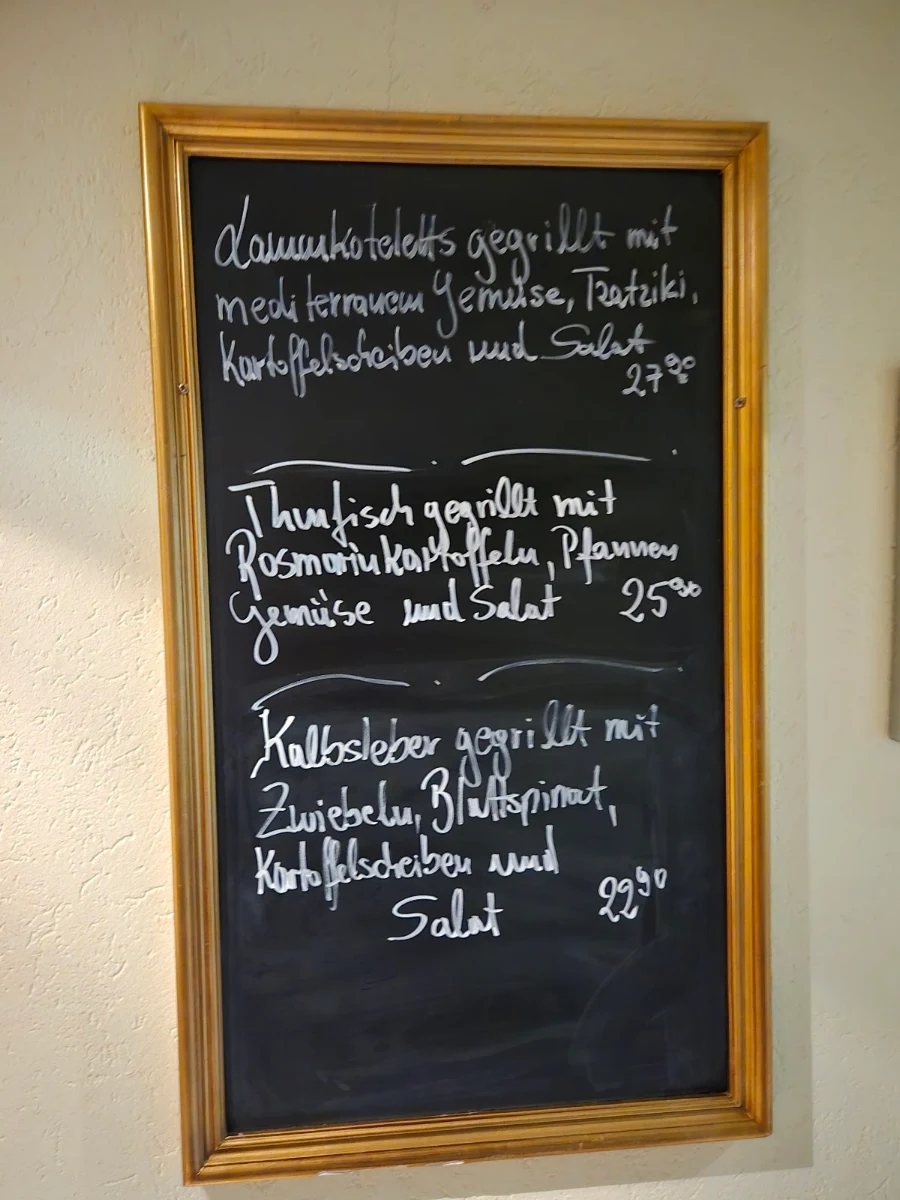 Lammkoteletts gegrillt mit
mediterranem Gemüse, Tzatziki,
Kartoffelscheiben und Salat
27,90
Thunfisch gegrillt mit
Rosmarinkartoffeln, Pfannen
Gemüse und Salat 25,90
Kalbsleber gegrillt mit
Zwiebeln, Blattspinat,
Kartoffelscheiben und
Salat 22,90